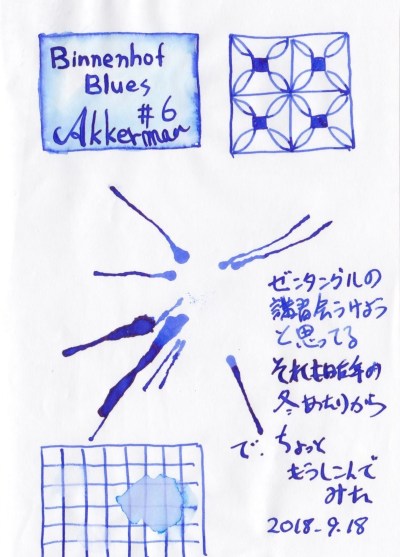 Binnenhof
Blues
#6
Akkerman
ゼンタングルの
講習会うけよう
と思ってる
それも昨年の
冬あたりから
で、ちょっと
もうしこんで
みた
2018-9.18